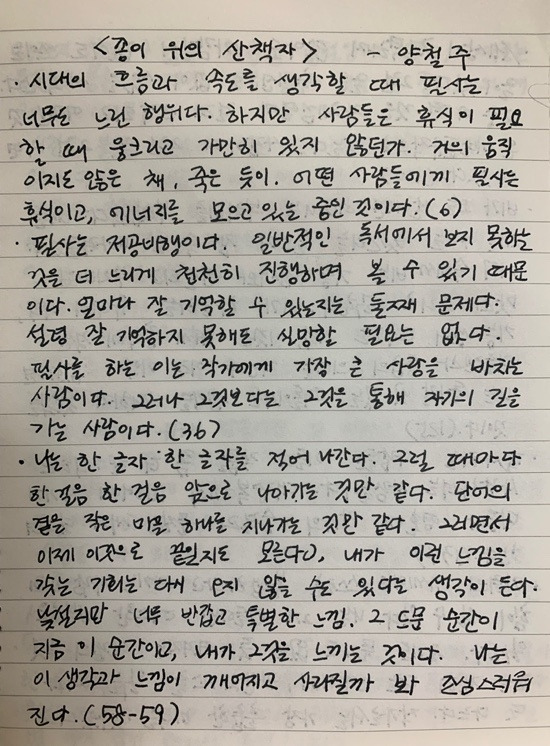 <종이 위의 산책자> - 양철주
· 시대의 흐름과 속도를 생각할 때 필사는
너무도 느린 행위다. 하지만 사람들은 휴식이 필요
할 때 웅크리고 가만히 있지 않던가. 거의 움직
이지도 않은 채, 죽은 듯이. 어떤 사람들에게 필사는
휴식이고, 에너지를 모으고 있는 중인 것이다. (6)
· 필사는 저공비행이다. 일반적인 독서에서 보지 못하는
것을 더 느리게 천천히 진행하며 볼 수 있기 때문
이다. 얼마나 잘 기억할 수 있는지는 둘째 문제다.
설령 잘 기억하지 못해도 실망할 필요는 없다.
필사를 하는 이는 작가에게 가장 큰 사랑을 바치는
사람이다. 그러나 그것보다는 그것을 통해 자기의 길을
가는 사람이다. (36)
· 나는 한 글자 한 글자를 적어 나간다. 그럴 때마다
한 걸음 한 걸음 앞으로 나아가는 것만 같다. 단어의
결을 작은 미물 하나를 지나가는 것만 같다. 그러면서
이제 이것으로 끝일지도 모른다, 내가 이런 느낌을
갖는 기회는 다시 오지 않을 수도 있다는 생각이 든다.
낯설지만 너무 반갑고 특별한 느낌. 그 드문 순간이
지금 이 순간이고, 내가 그것을 느끼는 것이다. 나는
이 생각과 느낌이 깨어지고 사라질까 봐 조심스러워
진다. (58-59)